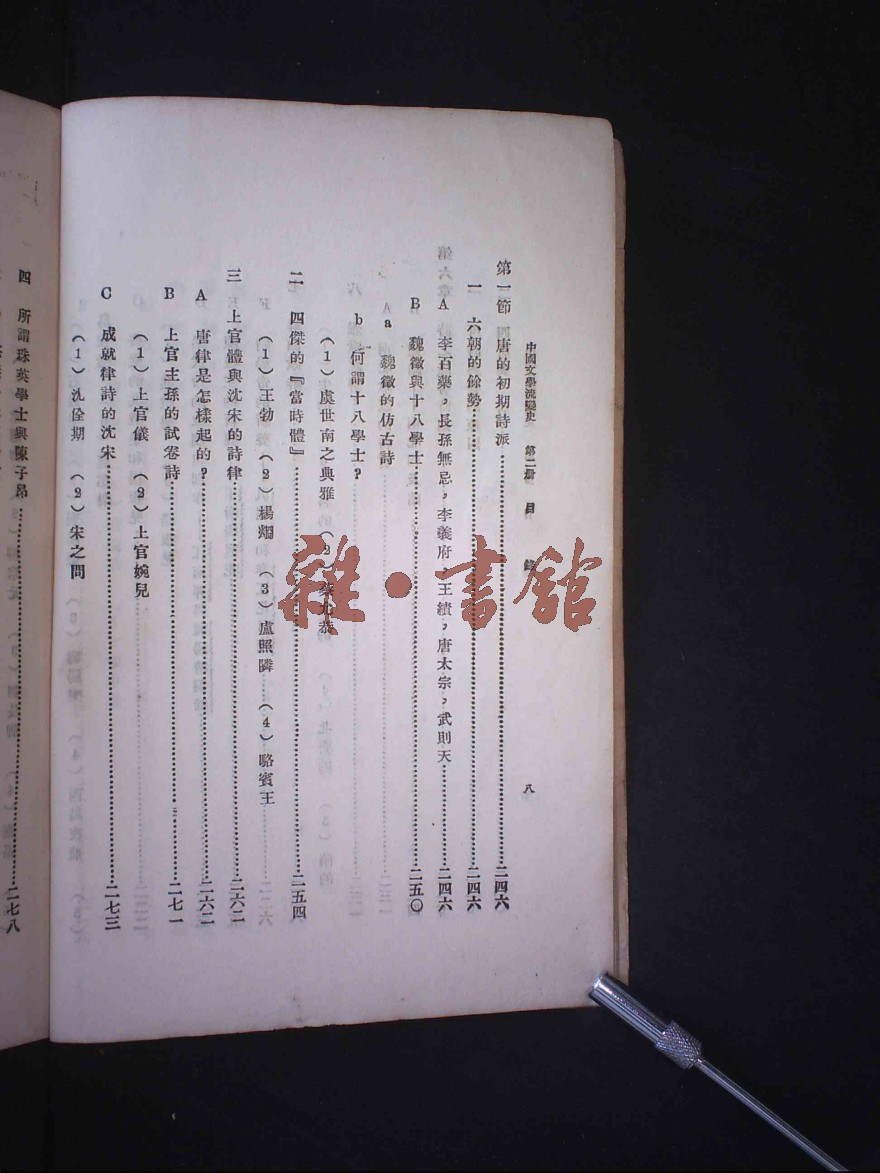 中國文學流變史 第二册 目 錄 八
第一節 四唐的初期詩派……二四六
一 六朝的餘勢……二四六
A 李百藥，長孫無忌，李義府，王績，唐太宗，武則天……二四六
B 魏徵與十八學士……二五〇
a 魏徵的仿古詩
b 何謂十八學士？
（1）虞世南之典雅 （2）蔡允恭
二 四傑的『當時體』……二五四
（1）王勃 （2）楊烱 （3）盧照隣 （4）駱賓王
三 上官體與沈宋的詩律……二六二
A 唐律是怎樣起的？……二六二
B 上官主孫的試卷詩……二七一
（1）上官儀 （2）上官婉兒
C 成就律詩的沈宋……二七三
（1）沈佺期 （2）宋之問
四 所謂珠英學士與陳子昂……二七八
雜·書館